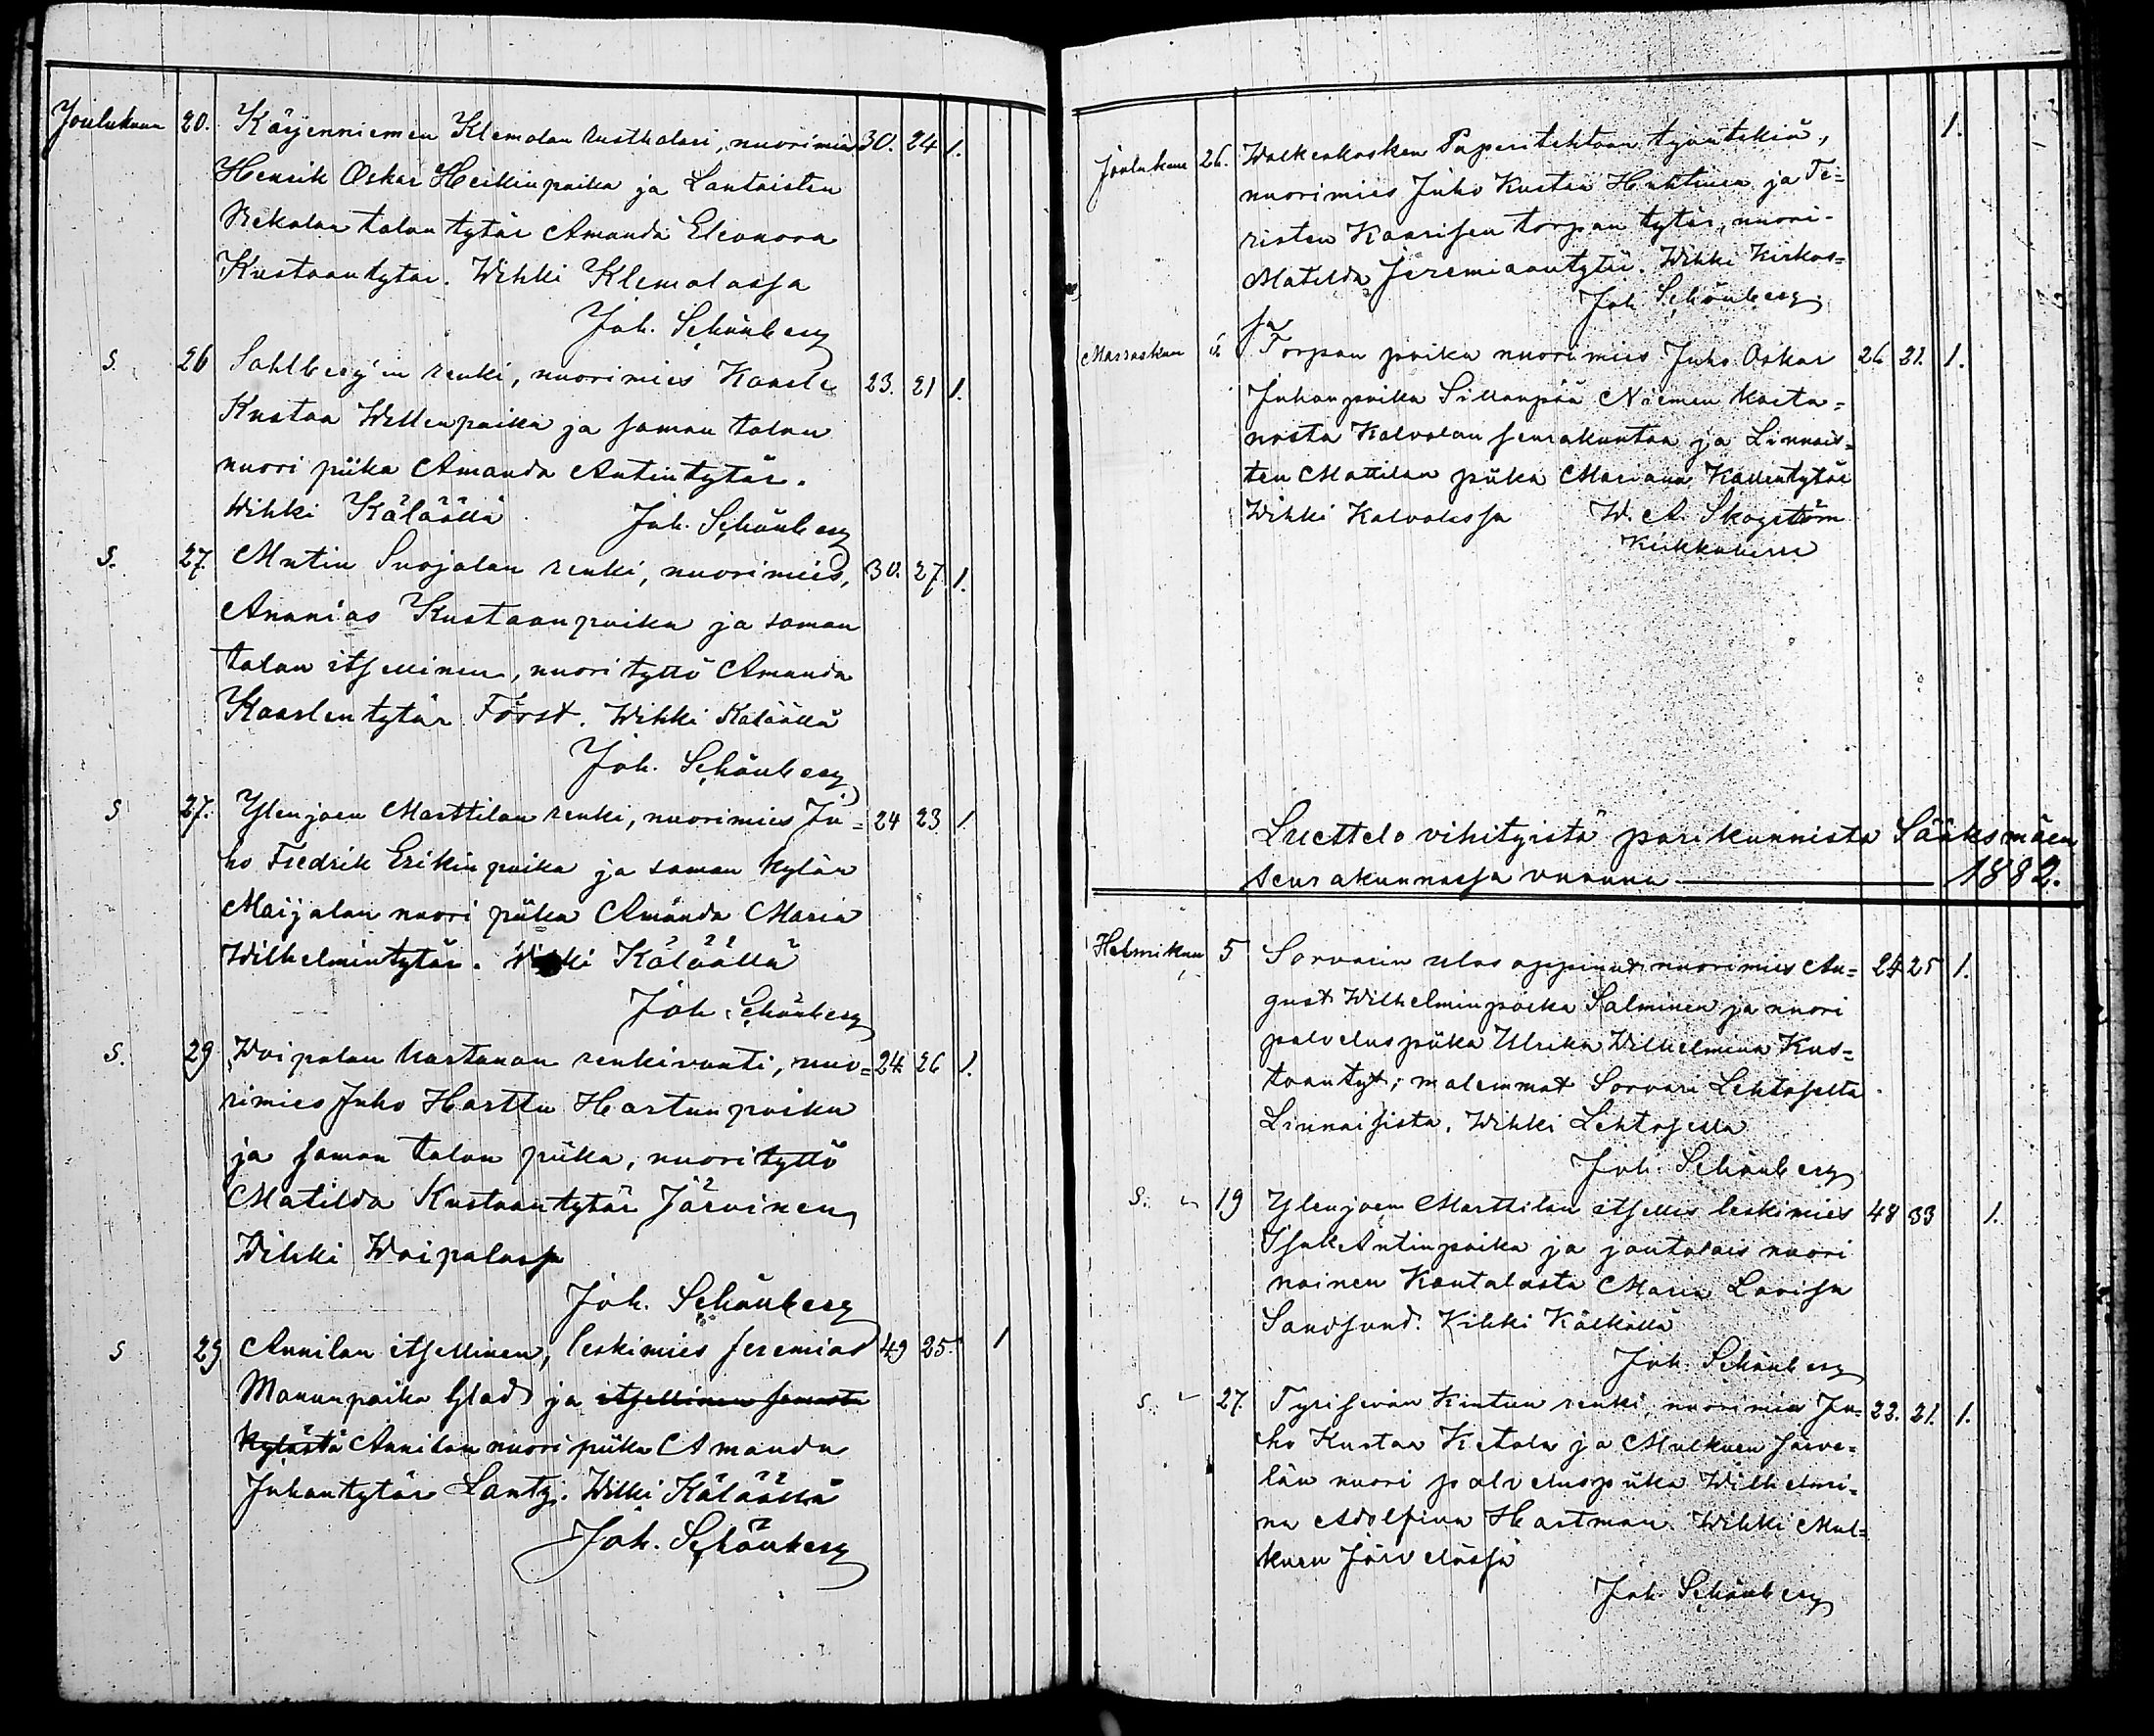 Joulukuun 20. Käyenniemen Klemolan rusthollari, nuorimies 30. 24 1.
Henrik Oskar Heikinpoika ja Lontoisten
Rekolan talon tytär Amanda Eleonora
Kustaantytär. Wihki Klemolassa
Joh. Schönberg
S. 26 Sohlberg'in renki, nuorimies Kaarle 23. 21 1.
Kustaa Willenpoika ja saman talon
nuori piika Amanda Antintytär.
Wihki Kälöällä Joh. Schönberg
S. 27. Mutin Suojolan renki, nuorimies, 30. 27. 1.
Ananias Kustaanpoika ja saman
talon itsellinen, nuori tyttö Amanda
Kaarlentytär Först. Wihki Kälöällä
Joh. Schönberg
S 27. Ylenjoen Marttilan renki, nuorimies Ju= 24 23 1
ho Fredrik Erikinpoika ja saman kylän
Maijalan nuori piika Amanda Maria
Wilhelmintytär. Wihki Kälöällä
Joh. Schönberg
S. 29 Woipalan kartanon renkivouti, nuo= 24 26 1.
rimies Juho Harttu Hartunpoika
ja saman talon piika, nuori tyttö
Matilda Kustaantytär Järvinen
Wihki Woipalassa
Joh. Schönberg
S 29 Annilan itsellinen, leskimies Jeremias 49 25. 1
Manunpoika Glad ja itsellinen samasta
kylästä Annilan nuori piika Amanda
Juhantytär Lantz. Wihki Kälöällä
Joh. Schönberg
1.
Joulukuun 26. Walkeakosken Paperitehtaan työntekiä,
nuorimies Juho Kustaa Huhtinen ja Te=
risten Kaarisen torpan tytär, nuori-
Matilda Jeremiaantytär. Wihki Kirkos=
sa Joh. Schönberg
Marraskuun Torpan poika nuorimies Juho Oskar 26 21. 1.
Juhanpoika Sillanpää Niemen karta=
nosta Kalvolan seurakuntaa ja Linnais=
ten Mattilan piika Mariana Kallentytär
Wihki Kalvolassa W. A. Skogström
Kirkkoherra
Luettelo vihityistä parikunnista Sääksmäen
seurakunnassa vuonna 1882.
Helmikuun 5 Sorvarin ulos oppinut nuorimies Au= 24 25 1.
gust Wilhelminpoika Salminen ja nuori
palveluspiika Ulrika Wilhelmina Kus=
taantyt; molemmat Sorvari Lehtoselta
Linnaisista. Wihki Lehtosella
Joh. Schönberg
S. " 19 Ylenjoen Marttilan itsellis leskimies 48 33 1.
Isak Antinpoika ja joutolais nuori
nainen Kantalasta Maria Lovisa
Sandsund. Wihki Kälkällä
Joh. Schönberg
S. " 27. Tyrisevän Kintun renki, nuorimies Ju= 22. 21. 1.
ho Kustaa Ketola ja Mulkuen Järve=
län nuori palveluspiika Wilhelmi=
na Adolfina Hartman. Wihki Mul=
kuen Järvelässä
Joh. Schönberg